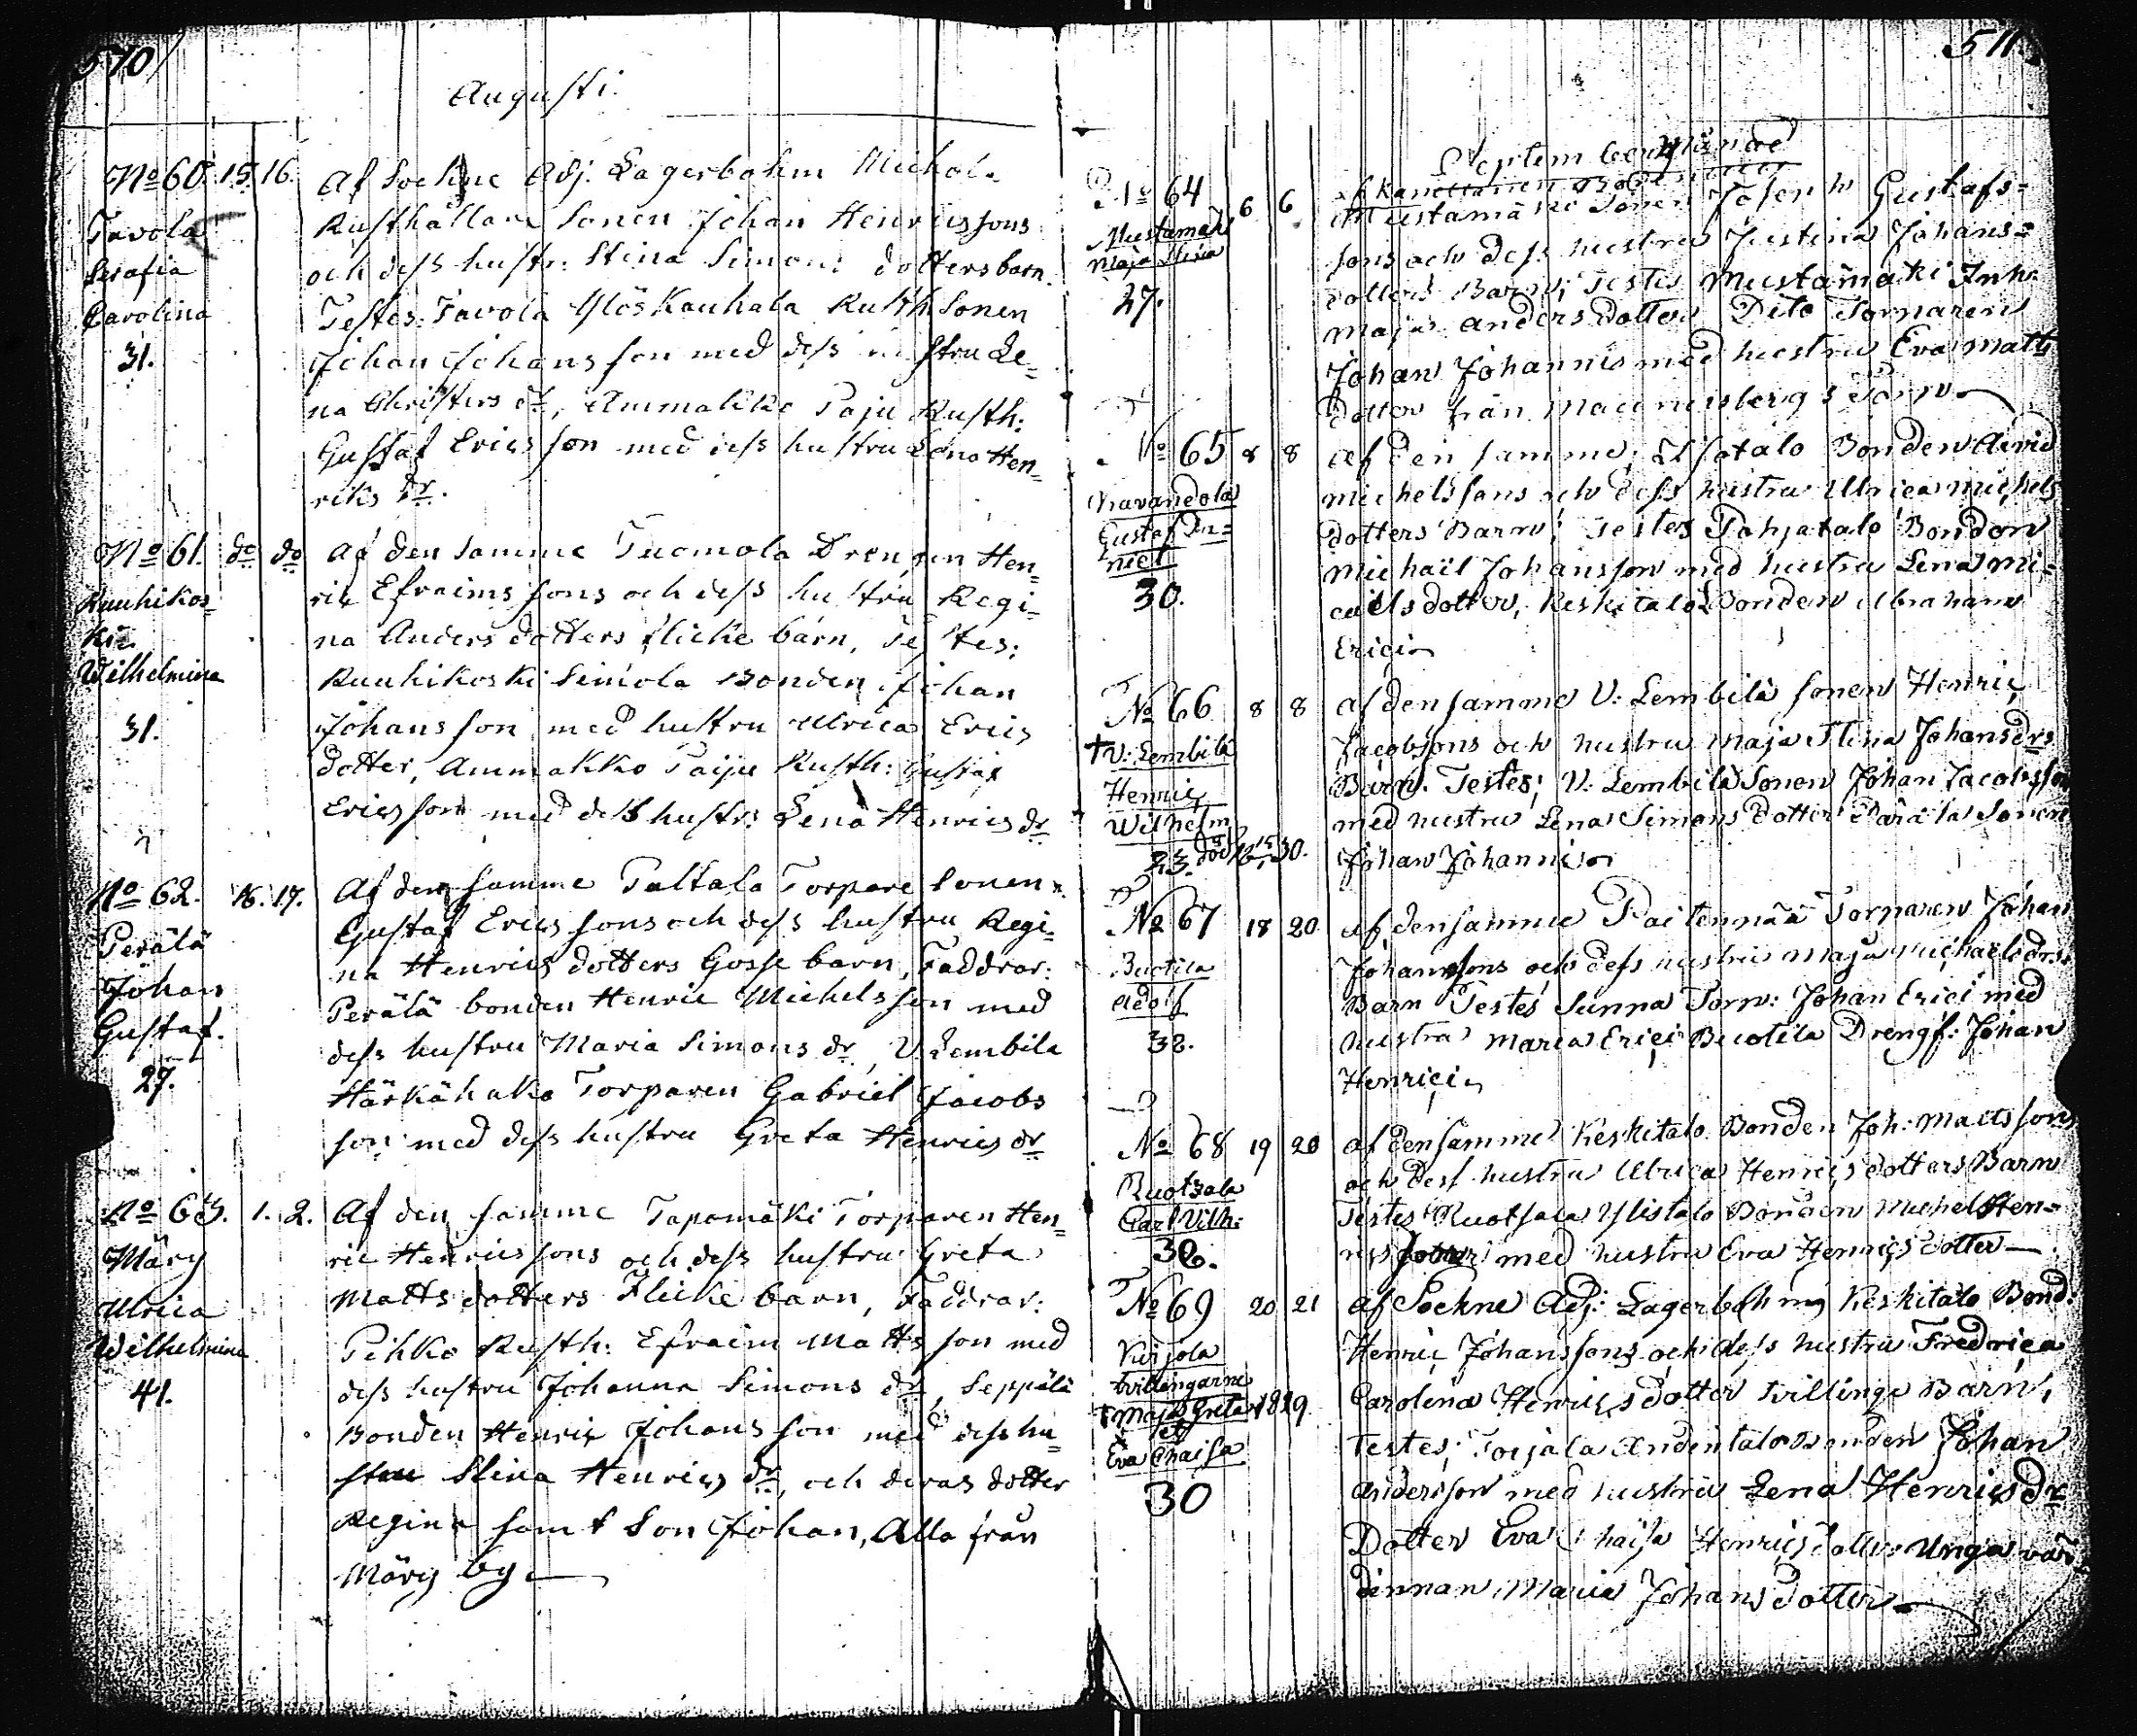 510
Augusti.
No 60. 15. 16. Af Sockne Adj. Lagerbohm Michola
Tavola Rusthållare Sonen Johan Henricssons
Serafia och dess hustr: Stina Simons dotters barn.
Carolina Testes: Tavola Ylöskauhala Rusth. Sonen
31. Johan Johansson med dess hustru Le=
na Christers dr, Ammakko Paju Rusth:
Gustaf Ericsson med dess hustru Lena Hen=
riks dr.
No 61. do do Af den samme Tuomola Drengen Hen=
Kuuhikos= ric Efraims sons och dess hustru Regi=
ki. na Anders dotters flicke barn, Testes:
Wilhelmina Kuuhikoski Simola Bonden Johan
31. Johansson med hustru Ulrica Erics
dotter, Ammakko Paiju Rusth: Gustaf
Ericsson med dess hustr: Lena Henrics dr
No 62. 16. 17. Af den samme Paltala Torpare Sonen
Perälä Gustaf Ericssons och dess hustru Regi=
Johan na Henrics dotters Gosse barn, Faddrar:
Gustaf. Perälä bonden Henric Michelsson med
27. dess hustru Maria Simons dr, V. Lembila
Härkähaka Torparen Gabriel Jacobs
son med dess hustru Greta Henrics dr
No 63. 1. 2. Af den samme Tapamäki Torparen Hen=
Märy ric Henricssons och dess hustru Greta
Ulrica Matts dotters Flicke barn, Faddrar:
Wilhelmina Pihko Rusth: Efraim Mattsson med
41. dess hustru Johanna Simons dr, Seppälä
Bonden Henric Johansson med dess hu=
stru Stina Henrics dr, och deras dotter
Regina samt Son Johan, Alla från
Märy by
511
September Månad
No 64 6 6 af
Mustamäki Mustamäki Sonen Joseph Gustafs=
Maja Stina sons och dess hustru Justina Johans=
27. dotters Barn; Testes Mustamäki Inh:
Maja Anders dotter Dito Torparen
Johan Johannis med hustru Eva Matts
dotter från Torp
No 65 8 8 af den samme; Bonden Arvid
Michelssons och dess hustru Ulrica Michels
Gustaf En= dotters Barn; Testes Pohjatalo Bonden
Michaël Johansson med hustru Lena Mi=
30. caëlsdotter, Keskitalo Bonden Abraham
Erici
No 66 8 8 af den samme V: Lembilä sonen Henric
† V: Lembilä Jacobsons och hustru Maja Stina Johansdrs
Henric Barn. Testes; V: Lembilä Sonen Johan Jacobsson
Wilhelm med hustru Lena Simons dotter Pärälä Sonen
23. död Johan Johannis
No 67 18 20 af den samme Torparen Johan
Buotila Johanssons och dess hustru Maja Michaelsdrs
Adolf Barn Testes Sunna Torp: Johan Erici med
38. hustru Maria Erici Buotila Drengf: Johan
Henrici
No 68 19 20 af den samme Keskitalo Bonden Joh: Mattsson
Ruotsala och dess hustru Ulrica Henrics dotters Barn
Carl Vilh: Testes Ruotsala Ylistalo Bonden Michel Hen=
36. med hustru Eva Henrics dotter
No 69 20 21 af Sockne Adj: Lagerbohm Keskitalo Bond:
Kurjola Henric Johanssons och dess hustru Fredrica
tvillingarne Carolina Henrics dotter tvillinge Barn,
† Maja Greta Testes; Torjala Bonden Johan
Eva Chaisa Andersson med hustru Lena Henrics dr
30 Dotter Eva Chaisa Henrics dotter Unga vär=
dinnan Maria Johans dotter